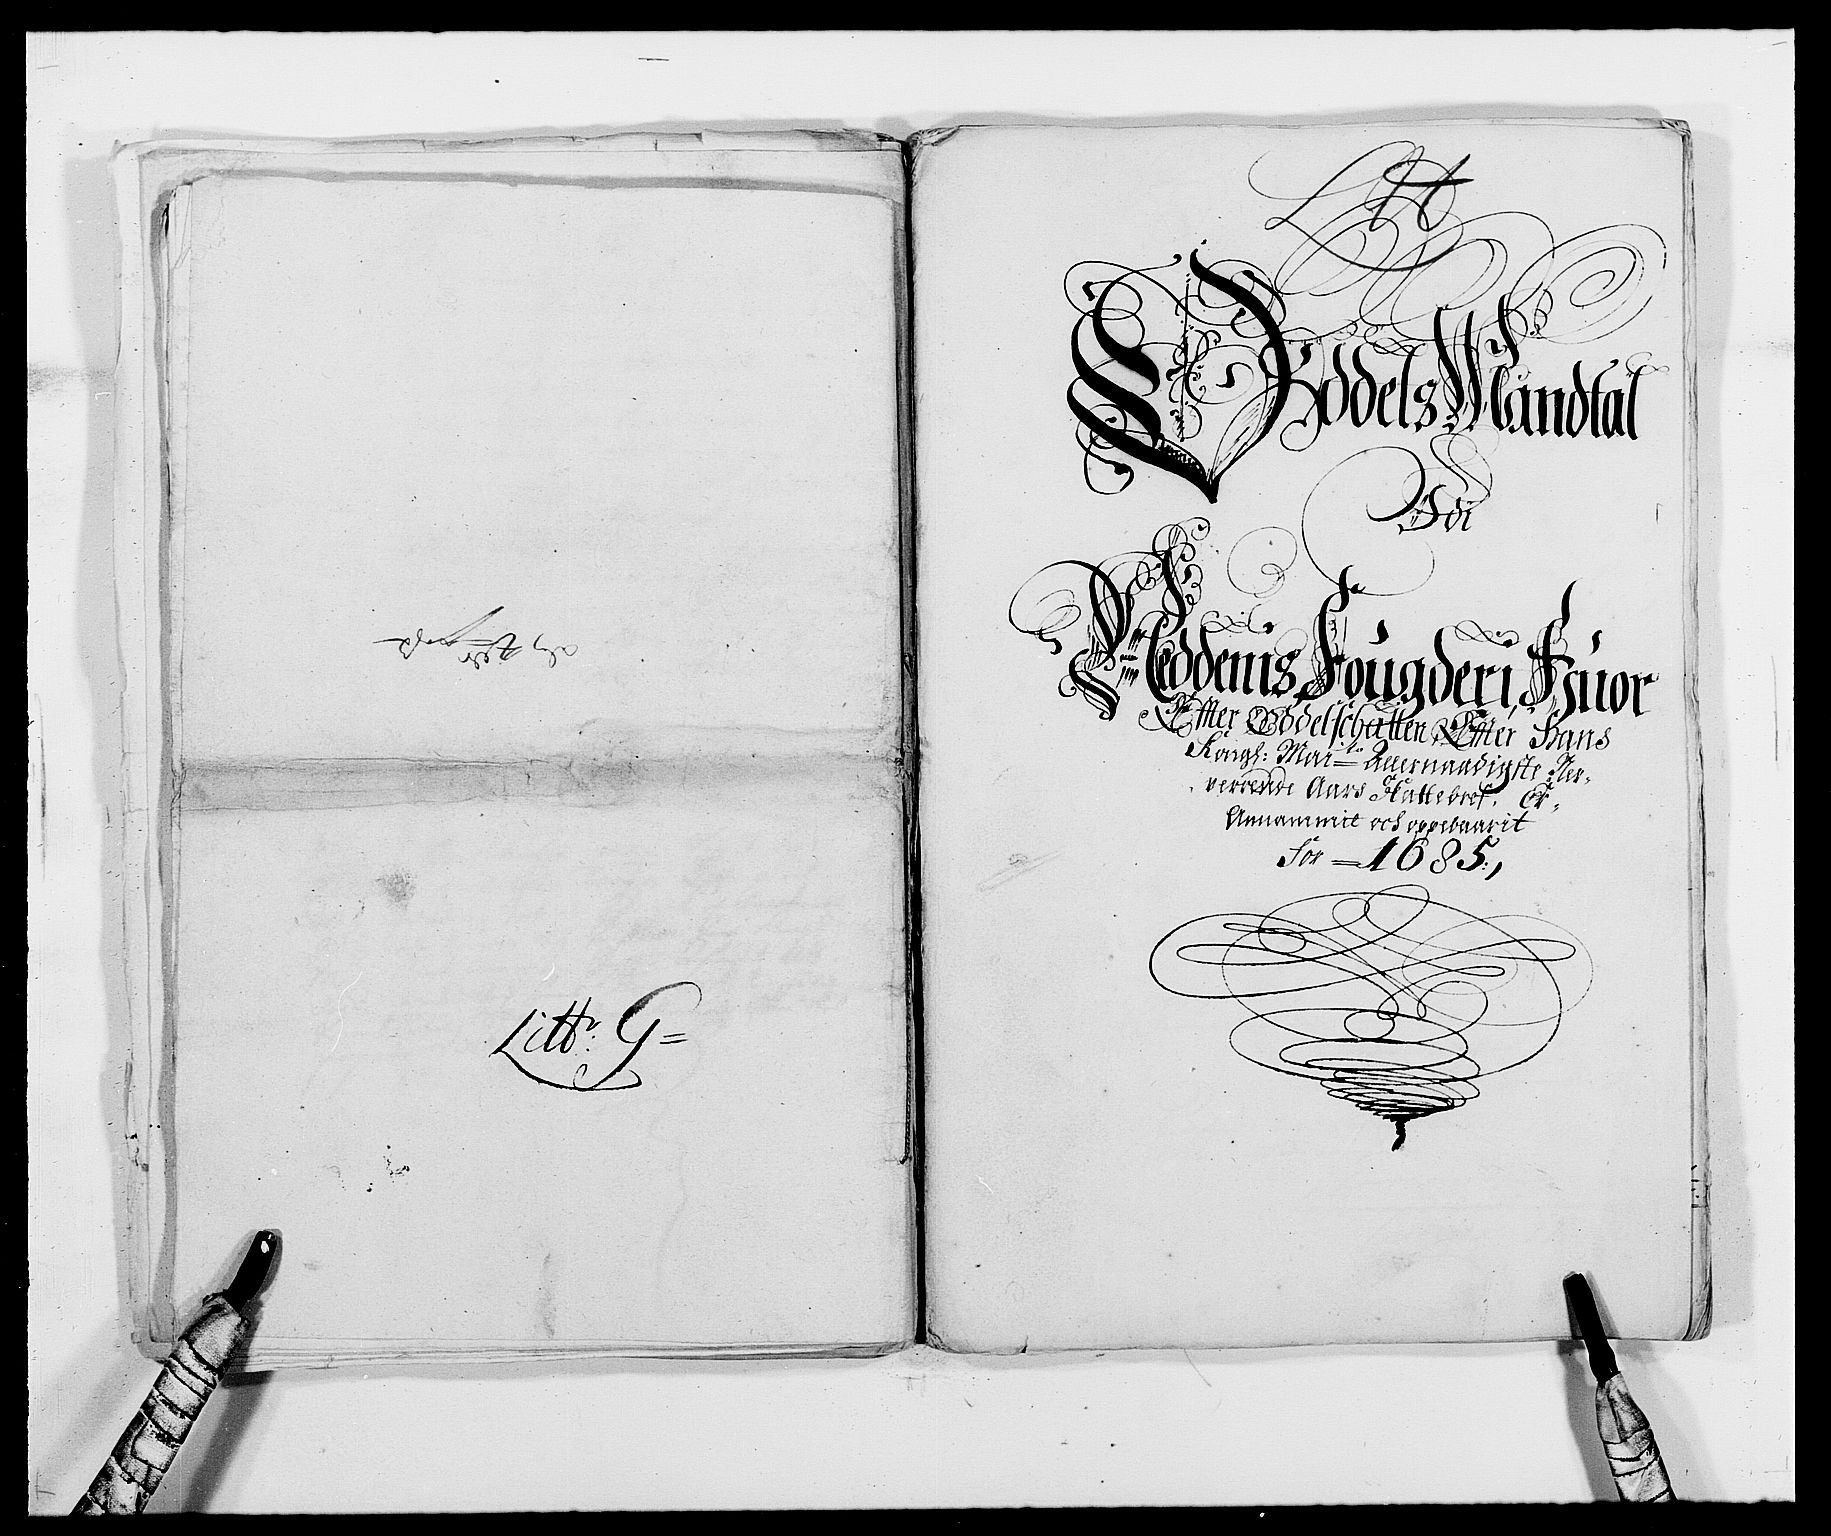 Litt.: G=
Litt H
Oddels Mandtal
For
Neddenis Fougderi, Huor
Effter Oddelschatten Effter Hans
Kongl: Mai: Allernaadigste Ner-
verrende Aars Skattebref, Er
Annammit och oppebaarit
for = 1685,